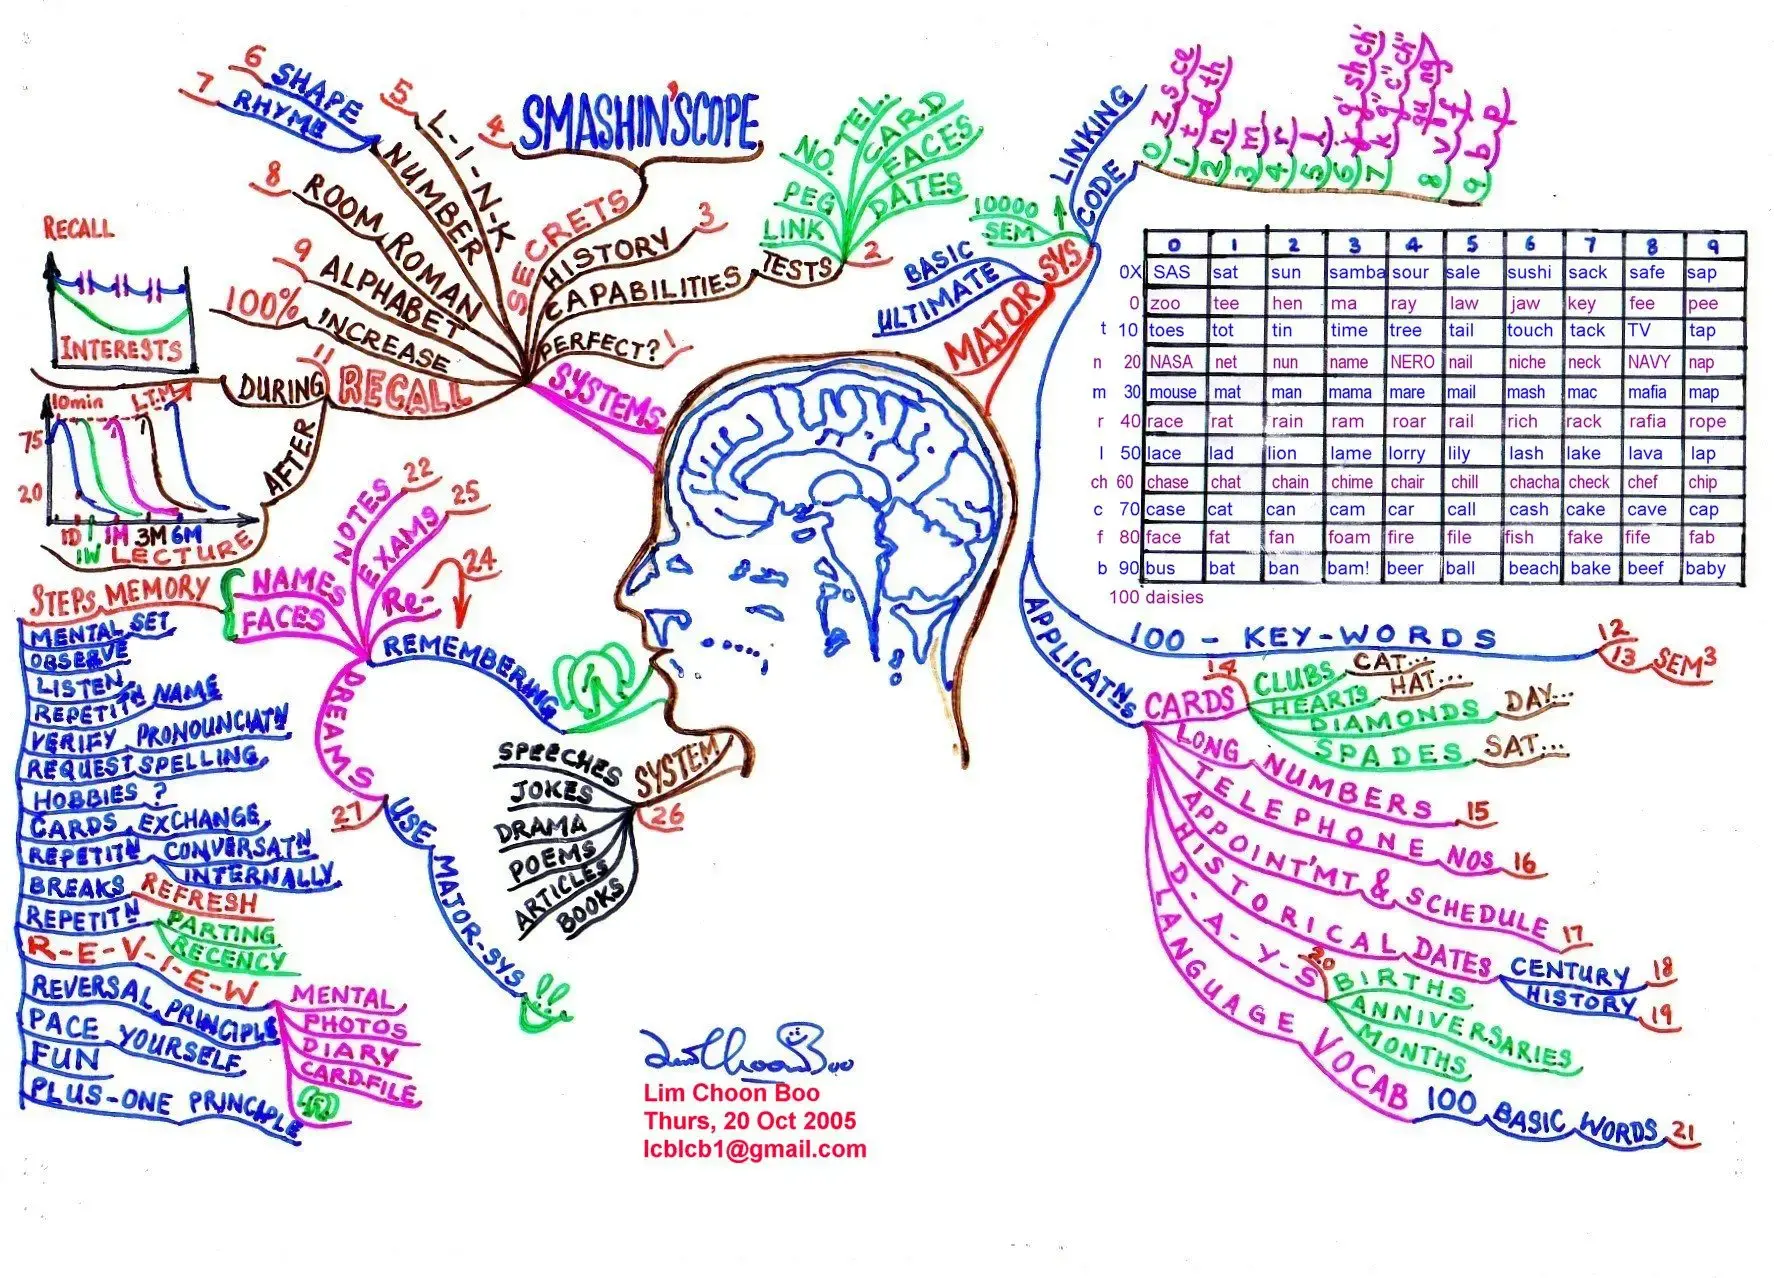 6 SHAPE
7 RHYME
5 L-I-N-K
NUMBER
4 SMASHIN'SCOPE
8 ROOM ROMAN
9 ALPHABET
100% INCREASE
SECRETS
HISTORY 3
CAPABILITIES
TESTS 2
PERFECT? 1
NO.
TEL.
CARD
FACES
DATES
PEG
LINK
SYSTEMS
11
RECALL
DURING
AFTER
RECALL
INTERESTS
10min L.T.M
75
20
1D 1W 1M 3M 6M
LECTURE
10000
SEM
BASIC
ULTIMATE
MAJOR SYS
LINKING
CODE
0) z, s, ce
1) t d th
2) n
3) m
4) r
5) l
6) j g' sh ch'
7) k g" c" ch"
qu ng
8) v f
9) b p
0 1 2 3 4 5 6 7 8 9
0X SAS sat sun samba sour sale sushi sack safe sap
0 zoo tee hen ma ray law jaw key fee pee
t 10 toes tot tin time tree tail touch tack TV tap
n 20 NASA net nun name NERO nail niche neck NAVY nap
m 30 mouse mat man mama mare mail mash mac mafia map
r 40 race rat rain ram roar rail rich rack rafia rope
l 50 lace lad lion lame lorry lily lash lake lava lap
ch 60 chase chat chain chime chair chill chacha check chef chip
c 70 case cat can cam car call cash cake cave cap
f 80 face fat fan foam fire file fish fake fife fab
b 90 bus bat ban bam! beer ball beach bake beef baby
100 daisies
100 - KEY-WORDS 12
13 SEM³
APPLICATNS
14
CARDS
CLUBS CAT...
HEARTS HAT...
DIAMONDS DAY...
SPADES SAT...
LONG NUMBERS 15
TELEPHONE NOS 16
APPOINT'MT & SCHEDULE 17
HISTORICAL DATES
CENTURY 18
HISTORY 19
D-A-Y-S 20
BIRTHS
ANNIVERSARIES
MONTHS
LANGUAGE VOCAB 100 BASIC WORDS 21
REMEMBERING
NOTES 22
EXAMS 25
Re- 24
NAMES
FACES
STEPS MEMORY
MENTAL SET
OBSERVE
LISTEN
REPETITN NAME
VERIFY PRONOUNCIATN
REQUEST SPELLING
HOBBIES ?
CARDS EXCHANGE
REPETITN CONVERSATN
INTERNALLY
BREAKS REFRESH
REPETITN PARTING
RECENCY
R-E-V-I-E-W
MENTAL
PHOTOS
DIARY
CARD-FILE
REVERSAL PRINCIPLE
PACE YOURSELF
FUN
PLUS-ONE PRINCIPLE
DREAMS
27
USE MAJOR-SYS
SYSTEM
26
SPEECHES
JOKES
DRAMA
POEMS
ARTICLES
BOOKS
Lim Choon Boo
Lim Choon Boo
Thurs, 20 Oct 2005
lcblcb1@gmail.com